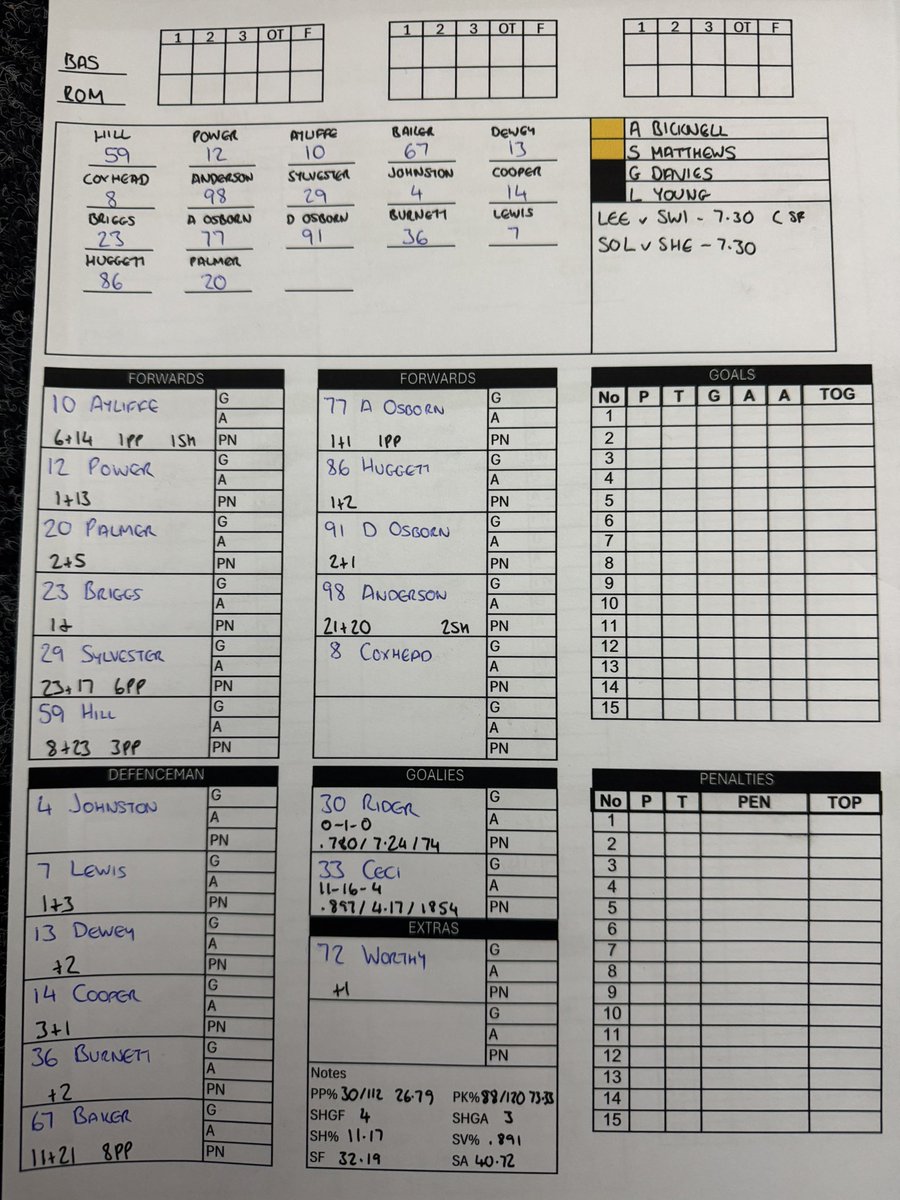 1 2 3 OT F
1 2 3 OT F
1 2 3 OT F
BAS
ROM
HILL POWER AYLIFFE BAILER DEWEY
59 12 10 67 13
COXHEAD ANDERSON SYLVESTER JOHNSTON COOPER
8 98 29 4 14
BRIGGS A OSBORN D OSBORN BURNETT LEWIS
23 77 91 36 7
HUGGETT PALMER
86 20
A BICKNELL
S MATTHEWS
G DAVIES
L YOUNG
LEE v SWI - 7.30 C SF
SOL v SHE - 7.30
FORWARDS
10 AYLIFFE G
A
6+14 1PP 1SH PN
12 POWER G
A
1+13 PN
20 PALMER G
A
2+5 PN
23 BRIGGS G
A
1+ PN
29 SYLVESTER G
A
23+17 6PP PN
59 HILL G
A
8+23 3PP PN
FORWARDS
77 A OSBORN G
A
1+1 1PP PN
86 HUGGETT G
A
1+2 PN
91 D OSBORN G
A
2+1 PN
98 ANDERSON G
A
21+20 2SH PN
8 COXHEAD G
A
PN
G
A
PN
GOALS
No P T G A A TOG
1
2
3
4
5
6
7
8
9
10
11
12
13
14
15
DEFENCEMAN
4 JOHNSTON G
A
PN
7 LEWIS G
A
1+3 PN
13 DEWEY G
A
+2 PN
14 COOPER G
A
3+1 PN
36 BURNETT G
A
+2 PN
67 BAKER G
A
11+21 8PP PN
GOALIES
30 RIDER G
0-1-0 A
.780/7.24/74 PN
33 CECI G
11-16-4 A
.897/4.17/1854 PN
EXTRAS
72 WORTHY G
A
+1 PN
G
A
PN
Notes
PP% 30/112 26.79 PK% 88/120 73.33
SHGF 4 SHGA 3
SH% 11.17 SV% .891
SF 32.19 SA 40.72
PENALTIES
No P T PEN TOP
1
2
3
4
5
6
7
8
9
10
11
12
13
14
15